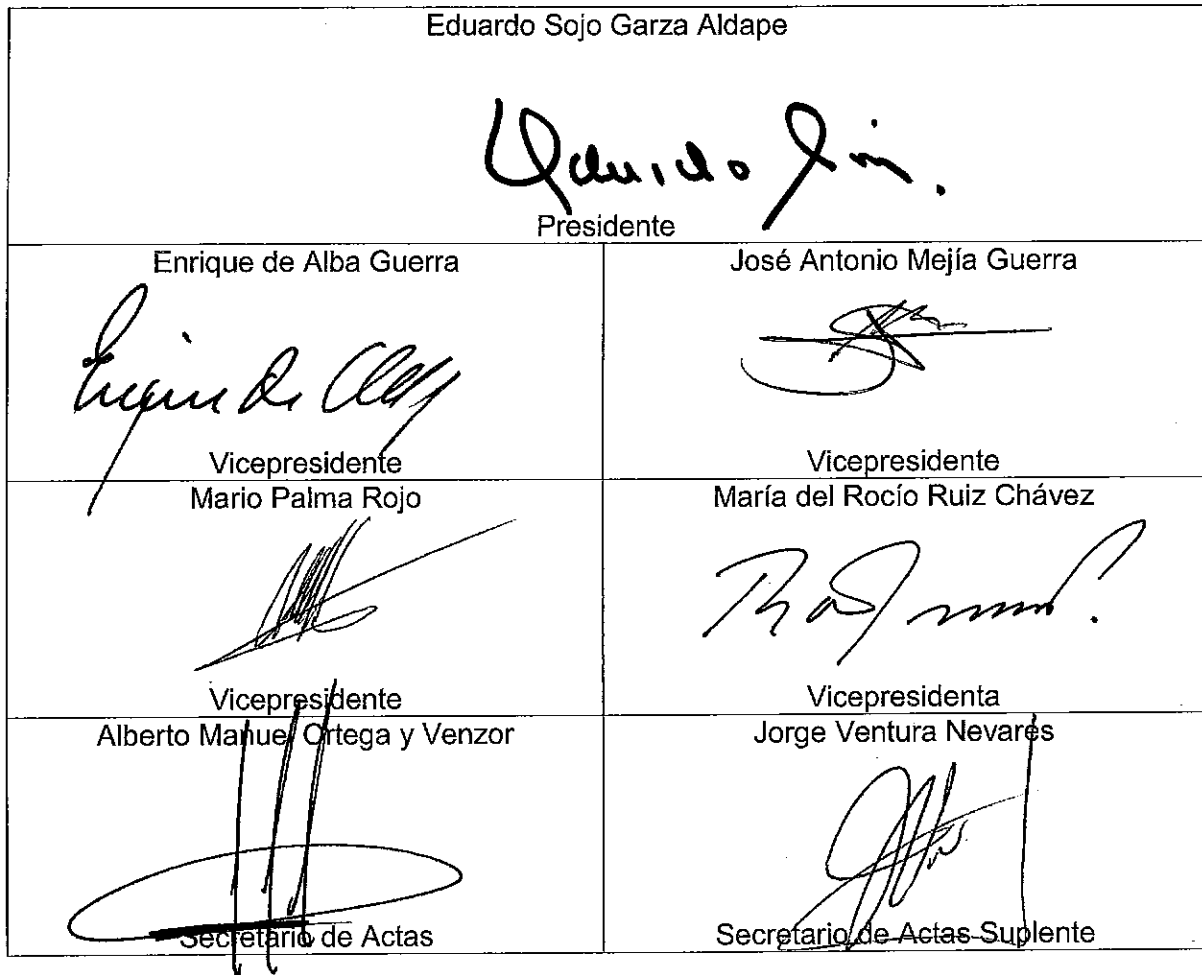 Eduardo Sojo Garza Aldape
Presidente
Enrique de Alba Guerra
Vicepresidente
José Antonio Mejía Guerra
Vicepresidente
Mario Palma Rojo
Vicepresidente
María del Rocío Ruiz Chávez
Vicepresidenta
Alberto Manuel Ortega y Venzor
Secretario de Actas
Jorge Ventura Nevares
Secretario de Actas Suplente